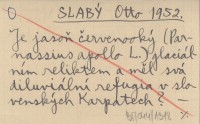 O SLABÝ Otto 1952.
Je jasoň červenooký (Par-
nassius apollo L.) glaciál-
ním reliktem a měl svá
diluviální refugia v slo-
venských Karpatech? —